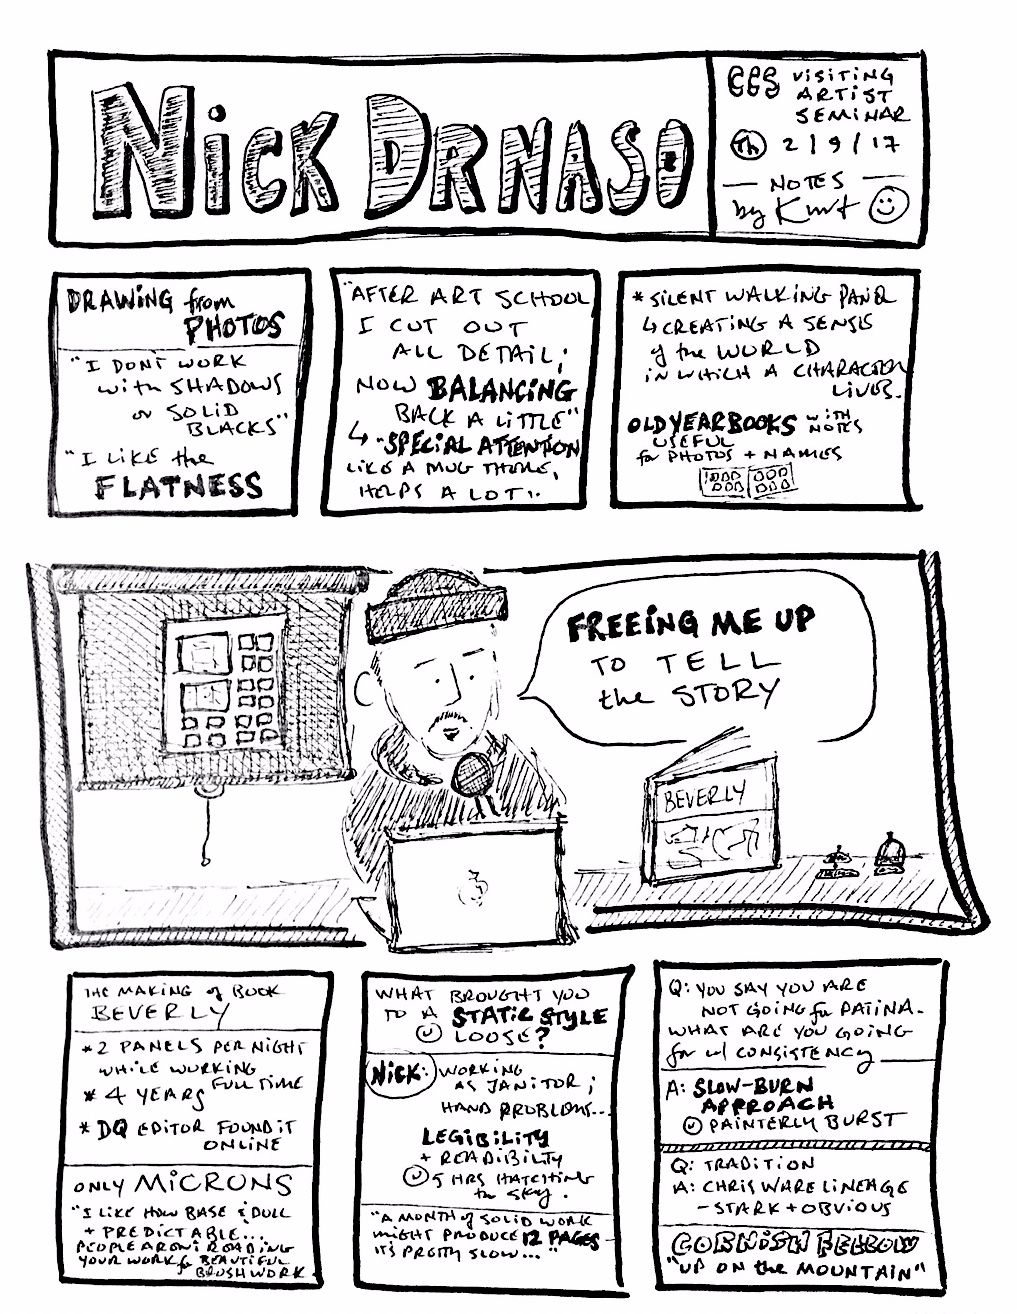 NICK DRNASO
CCS VISITING
ARTIST
SEMINAR
Th 2/9/17
— NOTES —
by Kurt
DRAWING from
PHOTOS
"I DONT WORK
with SHADOWS
or SOLID
BLACKS"
"I LIKE the
FLATNESS
"AFTER ART SCHOOL
I CUT OUT
ALL DETAIL;
NOW BALANCING
BACK A LITTLE"
↳ "SPECIAL ATTENTION
LIKE A MUG THERE,
HELPS A LOT".
* SILENT WALKING PANEL
↳ CREATING A SENSE
of the WORLD
IN WHICH A CHARACTER
LIVES.
OLD YEARBOOKS WITH
NOTES
USEFUL
for PHOTOS + NAMES
FREEING ME UP
TO TELL
the STORY
BEVERLY
THE MAKING of BOOK
BEVERLY
* 2 PANELS PER NIGHT
WHILE WORKING
FULL TIME
* 4 YEARS
* DQ EDITOR FOUND IT
ONLINE
ONLY MICRONS
"I LIKE HOW BASE & DULL
+ PREDICTABLE...
PEOPLE READING
YOUR WORK for BEAUTIFUL
BRUSHWORK.
WHAT BROUGHT YOU
TO A STATIC STYLE
LOOSE?
NICK: WORKING
AS JANITOR;
HAND PROBLEMS...
LEGIBILITY
+ READIBILTY
5 HRS HATCHING
the SKY.
"A MONTH of SOLID WORK
MIGHT PRODUCE 12 PAGES
ITS PRETTY SLOW..."
Q: YOU SAY YOU ARE
NOT GOING for PATINA.
WHAT ARE YOU GOING
for w/ CONSISTENCY
A: SLOW-BURN
APPROACH
PAINTERLY BURST
Q: TRADITION
A: CHRIS WARE LINEAGE
- STARK + OBVIOUS
CORNISH FELLOW
"UP ON the MOUNTAIN"